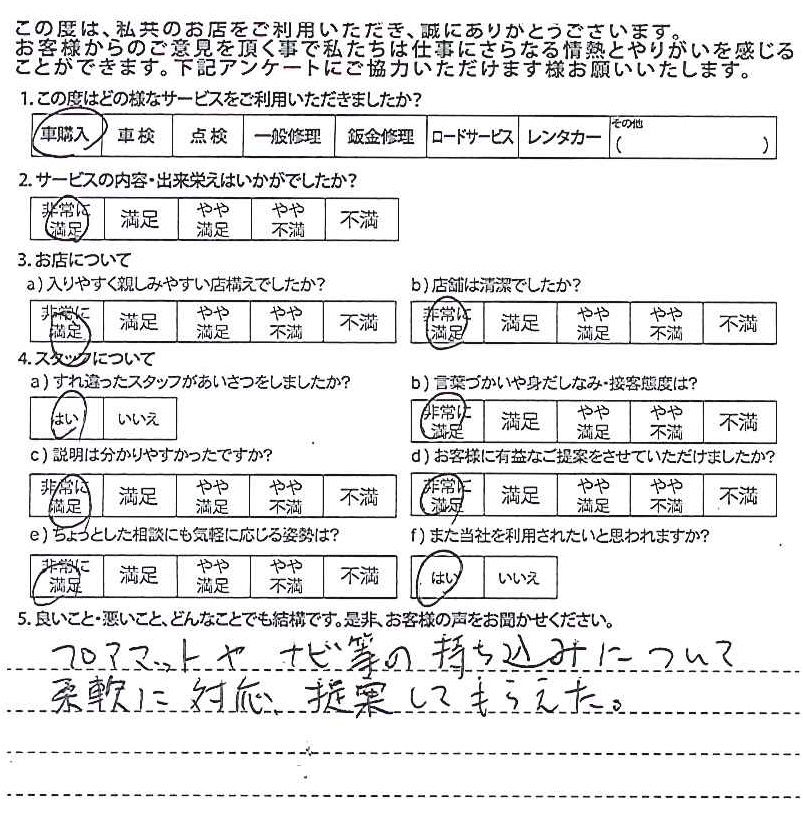 この度は、私共のお店をご利用いただき、誠にありがとうございます。
お客様からのご意見を頂く事で私たちは仕事にさらなる情熱とやりがいを感じる
ことができます。下記アンケートにご協力いただけます様お願いいたします。
1.この度はどの様なサービスをご利用いただきましたか?
車購入 車検 点検 一般修理 鈑金修理 ロードサービス レンタカー その他( )
2.サービスの内容・出来栄えはいかがでしたか?
非常に満足 満足 やや満足 やや不満 不満
3.お店について
a)入りやすく親しみやすい店構えでしたか? b)店舗は清潔でしたか?
非常に満足 満足 やや満足 やや不満 不満 非常に満足 満足 やや満足 やや不満 不満
4.スタッフについて
a)すれ違ったスタッフがあいさつをしましたか? b)言葉づかいや身だしなみ・接客態度は?
はい いいえ 非常に満足 満足 やや満足 やや不満 不満
c)説明は分かりやすかったですか? d)お客様に有益なご提案をさせていただけましたか?
非常に満足 満足 やや満足 やや不満 不満 非常に満足 満足 やや満足 やや不満 不満
e)ちょっとした相談にも気軽に応じる姿勢は? f)また当社を利用されたいと思われますか?
非常に満足 満足 やや満足 やや不満 不満 はい いいえ
5.良いこと・悪いこと、どんなことでも結構です。是非、お客様の声をお聞かせください。
フロアマットや ナビ等の 持ち込みについて
柔軟に 対応、提案してもらえた。